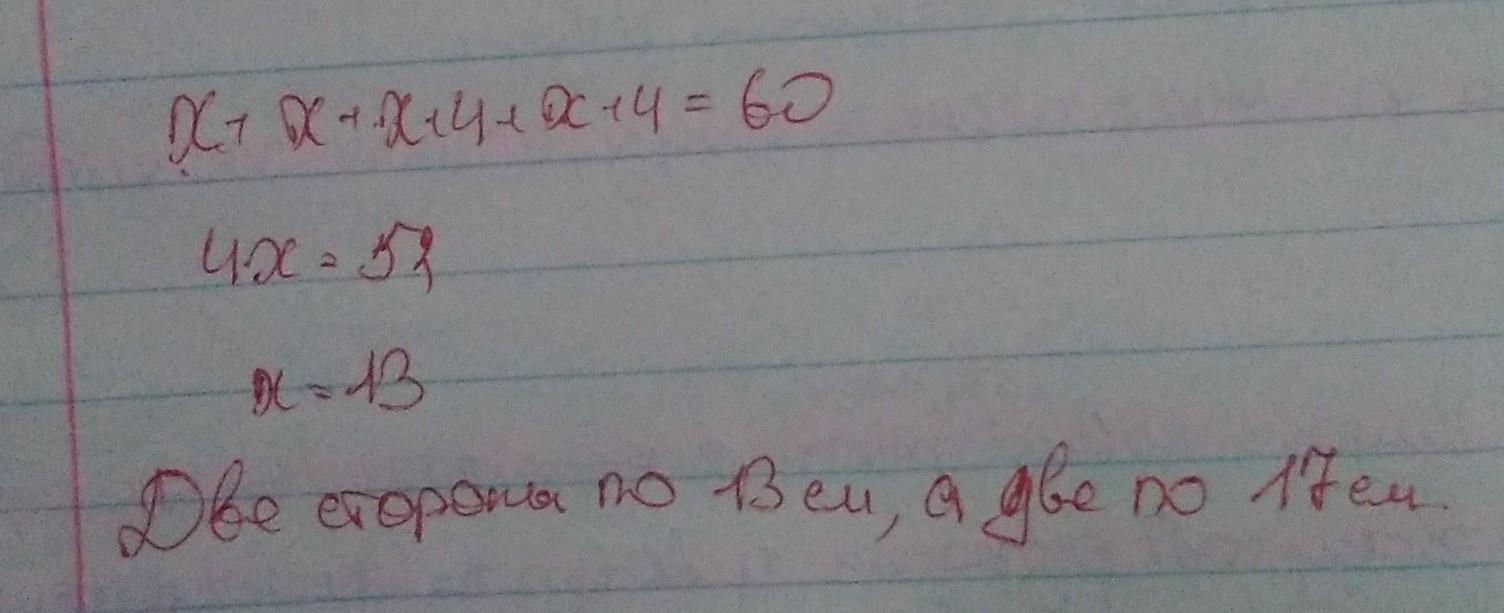 x+x+x+4+x+4=60
4x=52
x=13
Две стороны по 13 см, а две по 17 см.